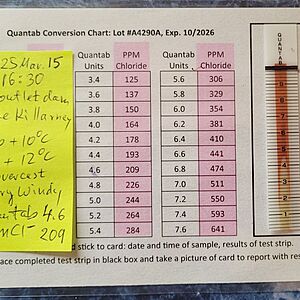 Quantab Conversion Chart: Lot #A4290A, Exp. 10/2026
25 Mar. 15
16:30
outlet dam
Killarney
+10°C
+ 12°C
overcast
Windy
4.6
209
Quantab Units PPM Chloride Quantab Units PPM Chloride
3.4 125 5.6 306
3.6 137 5.8 329
3.8 150 6.0 354
4.0 164 6.2 381
4.2 178 6.4 410
4.4 193 6.6 441
4.6 209 6.8 474
4.8 226 7.0 511
5.0 244 7.2 550
5.2 264 7.4 593
5.4 284 7.6 641
QUANTAB
stick to card: date and time of sample, results of test strip.
ace completed test strip in black box and take a picture of card to report with res